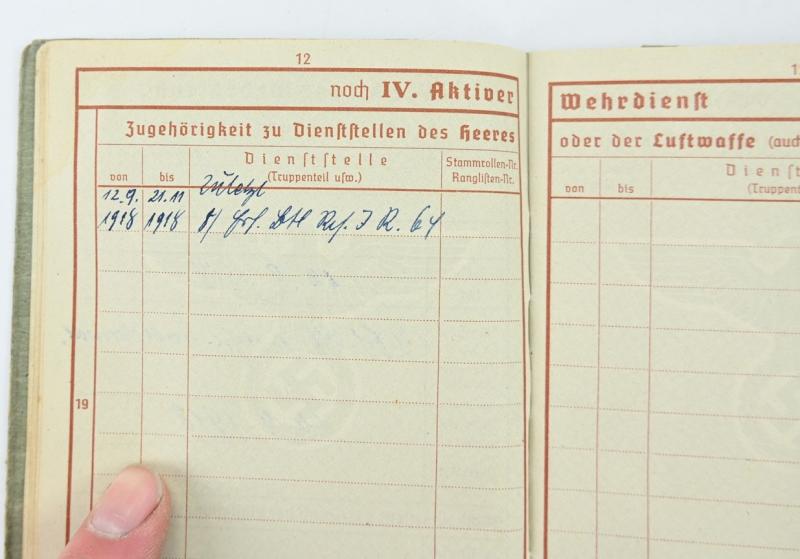 12
noch IV. Aktiver
Zugehörigkeit zu Dienststellen des Heeres
von
bis
Dienststelle
(Truppenteil usw.)
Stammrollen-Nr.
Ranglisten-Nr.
12.9. 21.11 zuletzt
1918 1918 Ers. Btl Res. I R. 64
19
1
Wehrdienst
oder der Luftwaffe (auch
von
bis
Dienst
(Truppent